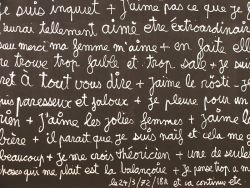 je suis inquiet + j'aime pas ce que je
j'aurai tellement aimé être extraordinair
sau merci ma femme m'aime + en fait elle
me trouve trop faible et trop salo + je suis
prêt à tout vous dire + j'aime le rösti - je
suis paresseux et jaloux + je pleure pour un
rien + j'aime les jolies femmes + j'aime l
bière + il parait que je suis naïf et cela me g
beaucoup + je me crois théoricien + une de seules
choses qui me plait est la balançoire + je pense trop, a tro
le 24/3/72/18h et ça continue et